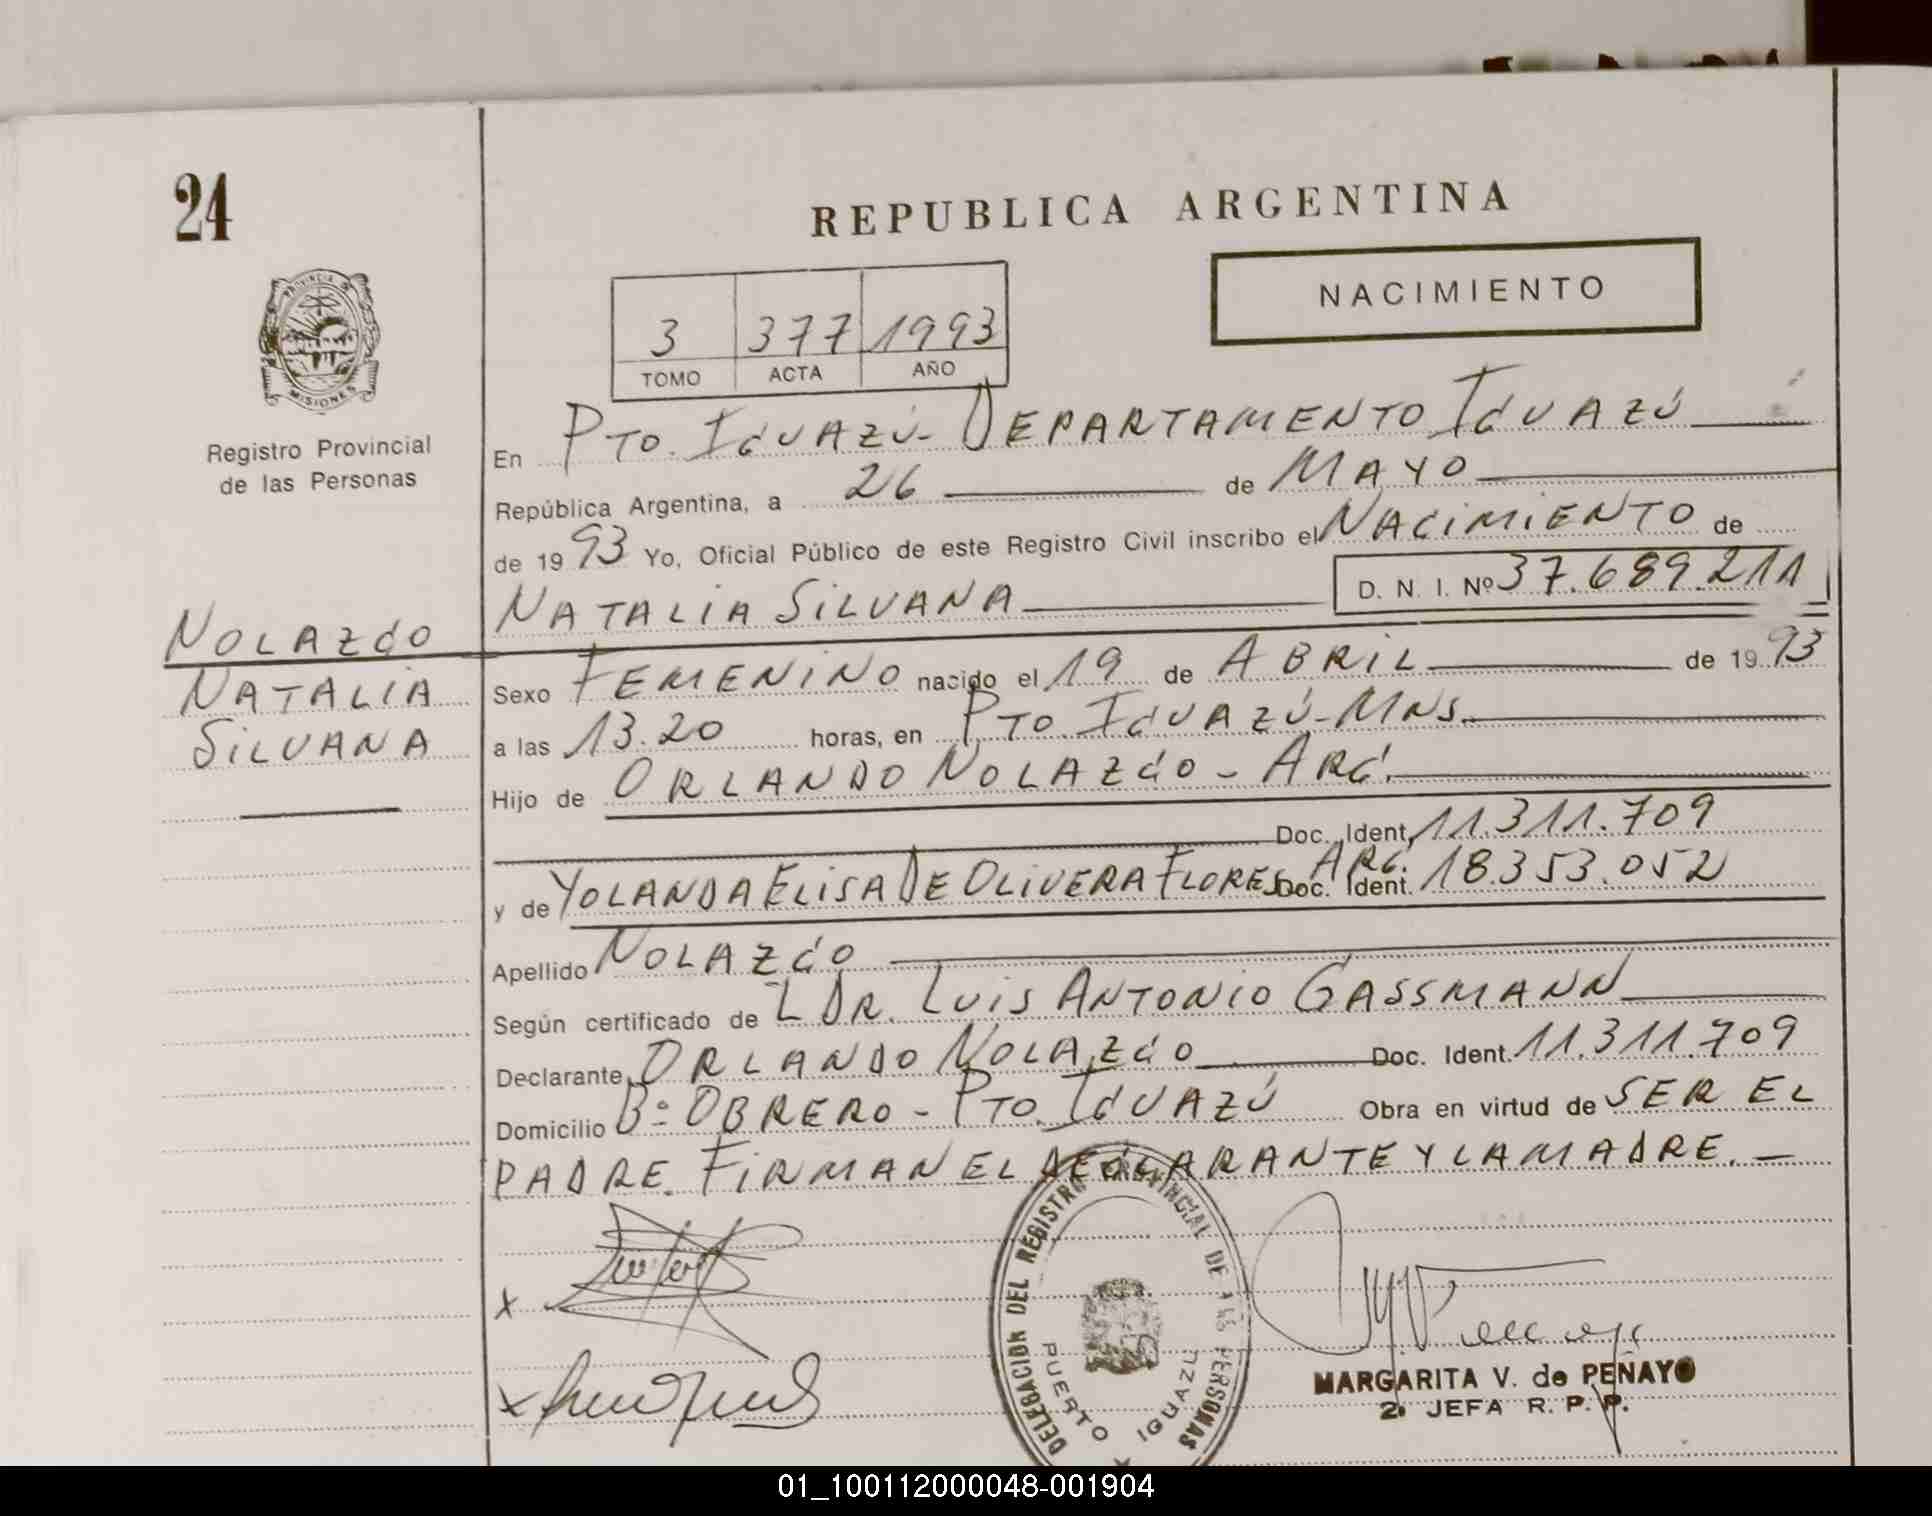 24
REPUBLICA ARGENTINA
NACIMIENTO
3 377 1993
TOMO ACTA AÑO
PROVINCIA DE
MISIONES
Registro Provincial
de las Personas
En PTO. IGUAZÚ - DEPARTAMENTO IGUAZÚ
República Argentina, a 26 de MAYO
de 1993 Yo, Oficial Público de este Registro Civil inscribo el NACIMIENTO de
D. N. I. Nº 37.689.211
NATALIA SILVANA
NOLAZCO
NATALIA
SILVANA
Sexo FEMENINO nacido el 19 de ABRIL de 1993
a las 13.20 horas, en PTO. IGUAZÚ - MNS.
Hijo de ORLANDO NOLAZCO - ARG.
Doc. Ident. 11.311.709
y de YOLANDA ELISA DE OLIVERA FLORES ARG. Doc. Ident. 18.353.052
Apellido NOLAZCO
Según certificado de L DR. LUIS ANTONIO GASSMANN
Declarante ORLANDO NOLAZCO Doc. Ident. 11.311.709
Domicilio Bº OBRERO - PTO. IGUAZÚ Obra en virtud de SER EL
PADRE. FIRMAN EL DECLARANTE Y LA MADRE. -
X
X
DELEGACION DEL REGISTRO PROVINCIAL DE LAS PERSONAS
PUERTO IGUAZU
MARGARITA V. de PEÑAYO
2. JEFA R. P. P.
01_100112000048-001904